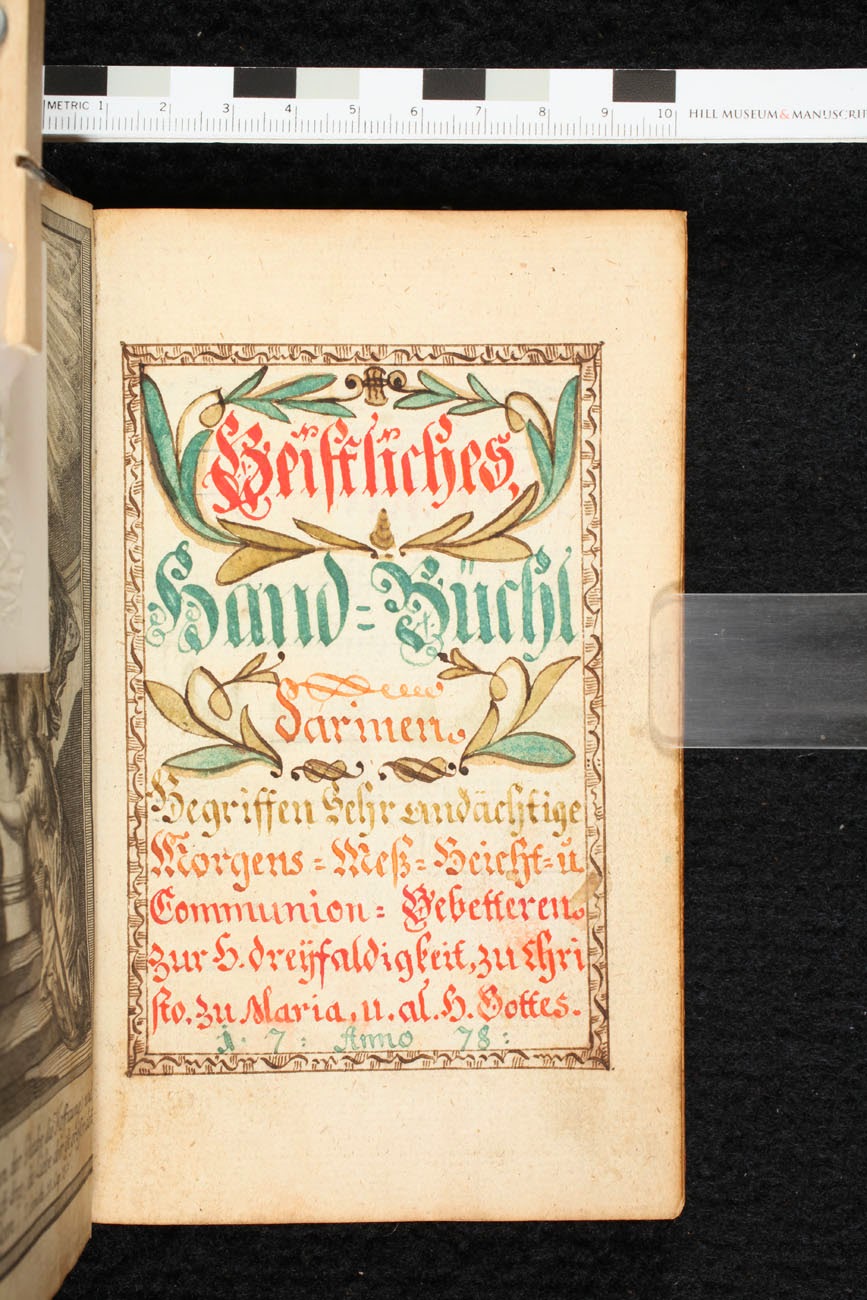 METRIC 1 2 3 4 5 6 7 8 9 10 HILL MUSEUM & MANUSCRI
Geistliches,
Hand=Büchl
Darinen.
Begriffen Sehr andächtige
Morgens=Meß=Beicht=ū
Communion=Gebetteren.
zur H. dreÿfaldigkeit, zu Chri
sto. zu Maria, u. al. H. Gottes.
1. 7: Anno 78: